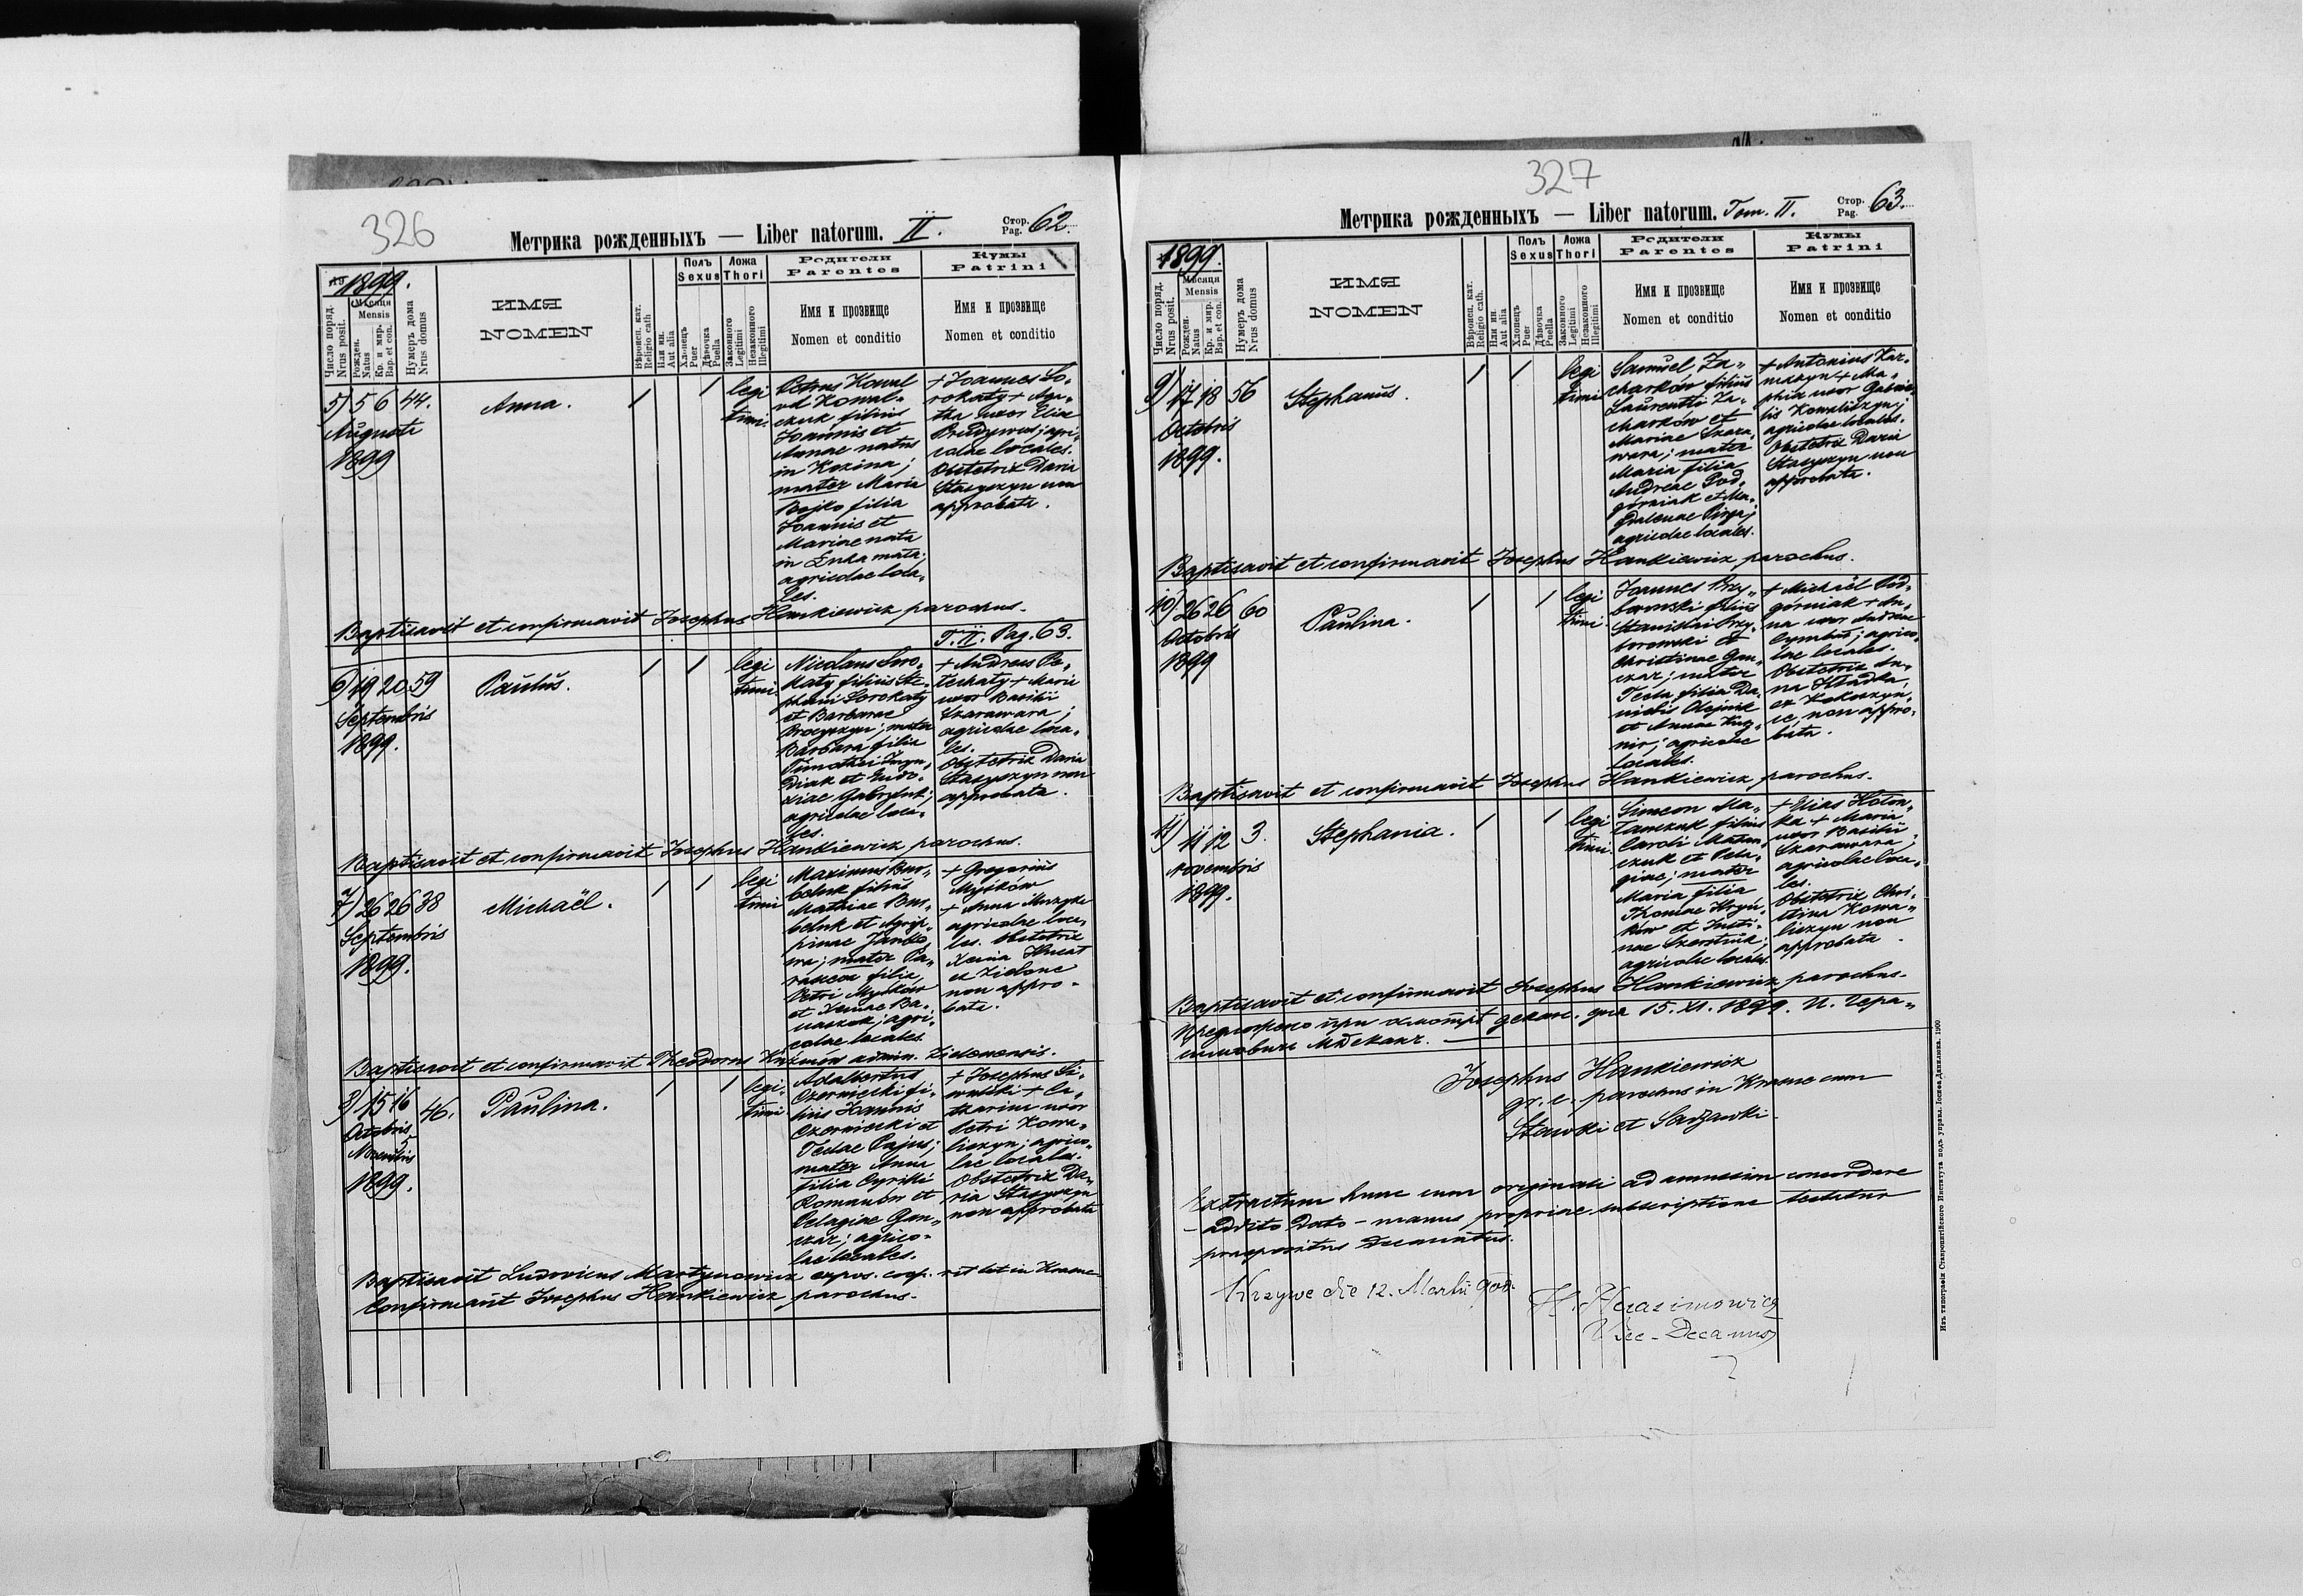 326
Метрика рожденныхъ — Liber natorum. II. Стор. Pag. 62.
1899.
Число поряд. Nrus posit.
Месяця Mensis
Рожден. Natus
Кр. и мир. Bap. et con.
Нумеръ дома Nrus domus
ИМЯ
NOMEN
Вѣроисп. кат. Religio cath
Или ин. Aut alia
Полъ Sexus
Хлопецъ Puer
Дѣвочка Puella
Ложа Thori
Законного Legitimi
Незаконного Illegitimi
Родители
Parentes
Имя и прозвище
Nomen et conditio
Кумы
Patrini
Имя и прозвище
Nomen et conditio
5) 5 6 44.
Augusti
1899
Anna.
1 1
legi
timi.
Petrus Kowal
vel Kowal-
czuk filius
Joannis et
Annae natus
in Kozina;
mater Maria
Bojko filia
Joannis et
Mariae nata
in Luka mała;
agricolae loca-
les.
+ Joannes So-
rokaty + Aga-
tha uxor Eliae
agri-
colae locales.
Obstetrix Daria
Stasyszyn non
approbata.
Baptisavit et confirmavit Josephus Hankiewicz parochus.
T. II. Pag. 63.
6) 19 20 59
Septembris
1899.
Paulus.
1 1
legi
timi
Nicolaus Soro-
katy filius Ste-
phani Sorokaty
et Barbarae
Procyszyn; mater
Barbara filia
Timothei
et Eudo-
xiae
agricolae loca-
les.
+ Andreas Pe-
techaty + Maria
uxor Basilii
Szarawara;
agricolae loca-
les.
Obstetrix Daria
Stasyszyn non
approbata.
Baptisavit et confirmavit Josephus Hankiewicz parochus.
7) 26 26 38
Septembris
1899.
Michaël.
1 1
legi
timi
Maximus Bur-
beluk filius
Mathiae Bur-
beluk et Agrip-
pinae
mater Pa-
rascea filia
Petri Myśków
et Xeniae Ba-
agri-
colae locales.
+ Gregorius
Myśków
+ Anna Muzyka
agricolae loca-
les. Obstetrix
Xenia
ex Zielone
non appro-
bata.
Baptisavit et confirmavit Theodorus Kuźmów admin. Zielonensis.
8) 15 16 46.
Octobris
5
Novembris
1899.
Paulina.
1 1
legi-
timi
Adalbertus
Czerniecki fi-
lius Joannis
Czerniecki et
Teclae Pajus;
mater Anna
filia Cyrilli
Romaniuk et
Pelagiae Gon-
czar; agrico-
lae locales.
+ Josephus
+ Ca-
tharina uxor
Petri Kowa-
liszyn; agrico-
lae locales.
Obstetrix Da-
ria Stasyszyn
non approbata
Baptisavit Ludovicus Martynowicz expos. coop. rit. lat. in Krasne
Confirmavit Josephus Hankiewicz parochus.
327
Метрика рожденныхъ — Liber natorum. Tom. II. Стор. Pag. 63.
1899.
Число поряд. Nrus posit.
Месяця Mensis
Рожден. Natus
Кр. и мир. Bap. et con.
Нумеръ дома Nrus domus
ИМЯ
NOMEN
Вѣроисп. кат. Religio cath.
Или ин. Aut alia
Полъ Sexus
Хлопецъ Puer
Дѣвочка Puella
Ложа Thori
Законного Legitimi
Незаконного Illegitimi
Родители
Parentes
Имя и прозвище
Nomen et conditio
Кумы
Patrini
Имя и прозвище
Nomen et conditio
9) 17 18 56
Octobris
1899.
Stephanus.
1 1
legi
timi
Samuel Za-
charków filius
Laurentii Za-
charków et
Mariae Szara-
wara; mater
Maria filia
Andreae Pod-
górniak et Ma-
gdalenae
agricolae locales.
+ Antonius
+ Ma-
ria uxor Gabrie-
lis Kowaliszyn;
agricolae locales.
Obstetrix Daria
Stasyszyn non
approbata.
Baptisavit et confirmavit Josephus Hankiewicz parochus.
10) 26 26 60
Octobris
1899
Paulina.
1 1
legi
timi.
Joannes Przy-
borowski filius
Stanislai Przy-
borowski et
Christinae Gon-
czar; mater
Tecla filia Da-
nielis Olejnik
et Annae Kusz-
nir; agricolae
locales.
+ Michaël Pod-
górniak + An-
na uxor Andreae
Cymbał; agrico-
lae locales.
Obstetrix An-
na
ex
non appro-
bata.
Baptisavit et confirmavit Josephus Hankiewicz parochus.
11) 11 12 3.
Novembris
1899.
Stephania.
1 1
legi
timi.
Simeon Ma-
filius
Caroli
et Pela-
giae; mater
Maria filia
Thomae Hryń-
ków et Justi-
nae
agricolae locales.
+ Elias Hołow-
ka + Maria
uxor Basilii
Szarawara;
agricolae loca-
les.
Obstetrix Chri-
stina Kowa-
liszyn non
approbata.
Baptisavit et confirmavit Josephus Hankiewicz parochus.
Предложено при декан. дня 15. XI. 1899. И. Гера-
симовичь
Josephus Hankiewicz
gr. c. parochus in Krasne cum
Stawki et Sadzawki.
Extractum hunc cum originali ad amussim concordare
- addito dato - manus propriae subscriptione testatur
praepositus decanatus.
Krzywe die 12. Martii 900.
H. Herasimowicz
Vice-Decanus
Изъ типографіи Ставропигійского Института подъ управл. Іосифа Данилюка. 1900